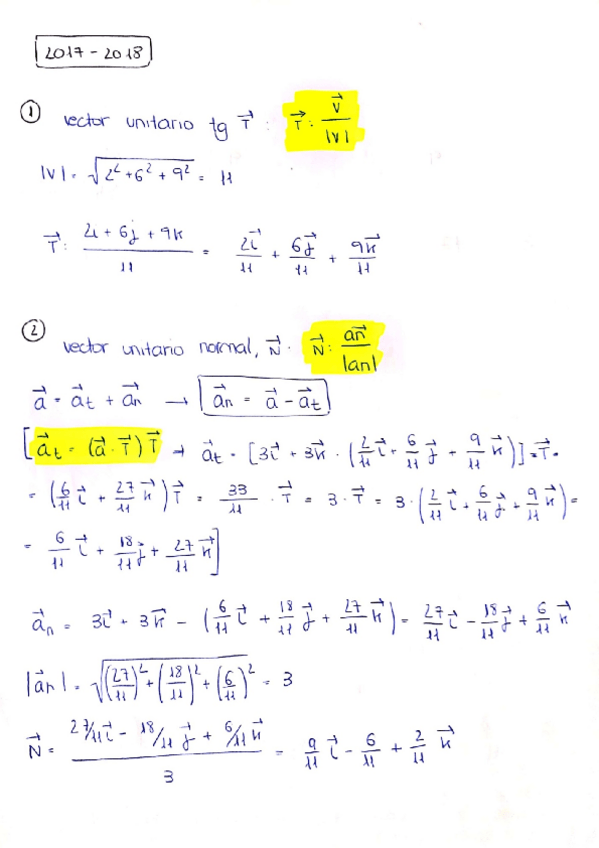 2017-2018
① vector unitario tg T⃗ : T⃗ : v⃗/|v|
|v| = √(2² + 6² + 9²) = 11
T⃗ : (2i + 6j + 9k)/11 = 2i⃗/11 + 6j⃗/11 + 9k⃗/11
② vector unitario normal, N⃗ . N⃗ : an⃗/|an|
a⃗ = a⃗t + a⃗n → a⃗n = a⃗ - a⃗t
[a⃗t = (a⃗ · T⃗) T⃗ → a⃗t = [3i⃗ + 3k⃗ · (2/11 i⃗ + 6/11 j⃗ + 9/11 k⃗)] · T⃗ =
= (6/11 i⃗ + 27/11 k⃗) T⃗ = 33/11 · T⃗ = 3 · T⃗ = 3 · (2/11 i⃗ + 6/11 j⃗ + 9/11 k⃗) =
= 6/11 i⃗ + 18/11 j⃗ + 27/11 k⃗]
a⃗n = 3i⃗ + 3k⃗ - (6/11 i⃗ + 18/11 j⃗ + 27/11 k⃗) = 27/11 i⃗ - 18/11 j⃗ + 6/11 k⃗
|a⃗n| = √((27/11)² + (18/11)² + (6/11)²) = 3
N⃗ = (27/11 i⃗ - 18/11 j⃗ + 6/11 k⃗)/3 = 9/11 i⃗ - 6/11 + 2/11 k⃗